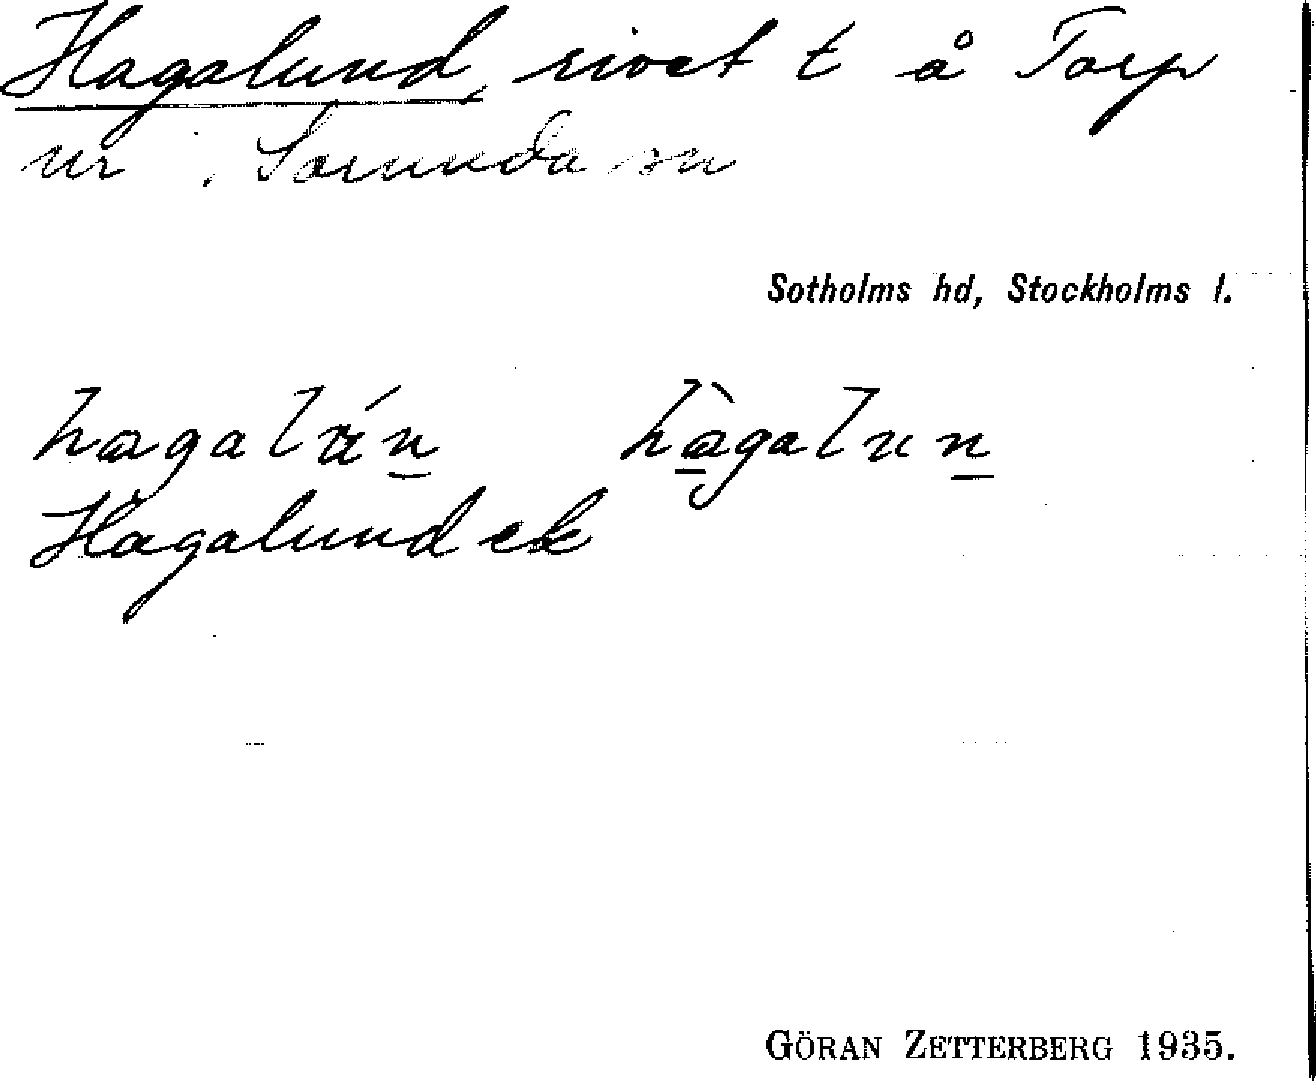 Hagalund, rivet t å Torp
nr . Sorunda sn
Sotholms hd, Stockholms l.
hagalún hàgalun
Hagalund ek
GÖRAN ZETTERBERG 1935.